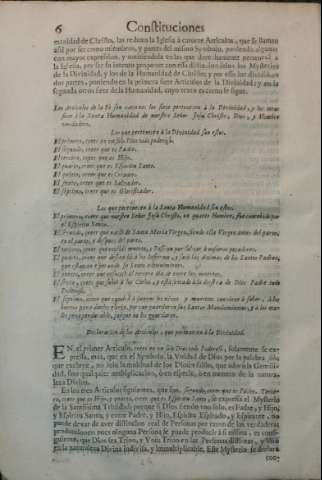 6 Constituciones
manidad de Christo, las reduxo la Iglesia à catorce Articulos, que se llaman
assi por ser como miembros, y partes del mismo Symbolo, poniendo algunos
con mayor expression, y
la Iglesia, por ser su intento proponer con esta distincion todos los Mysterios
de la Divinidad, y los de la Humanidad de Christo; y por esso los dividió en
dos partes, poniendo en la primera siete Articulos de la Divinidad; y en la
segunda otros siete de la Humanidad, cuyo texto es como se sigue.
Los Articulos de la Fè son catorce: los siete pertenecen à la Divinidad, y los otros
siete à la Santa Humanidad de nuestro Señor Jesu Christo, Dios, y Hombre
verdadero.
Los que pertenecen à la Divinidad son estos.
El primero, creer en un solo Dios todo poderoso.
El segundo, creer que es Padre.
El tercero, creer que es Hijo.
El quarto, creer que es Espiritu Santo.
El quinto, creer que es Criador.
El sexto, creer que es Salvador.
El septimo, creer que es Glorificador.
Los que pertenecen à la Santa Humanidad son estos.
El primero, creer que nuestro Señor Jesu Christo, en quanto Hombre, fue concebido por
el Espiritu Santo.
El segundo, creer que nació de Santa Maria Virgen, siendo ella Virgen antes del parto,
en el parto, y despues del parto.
El tercero, creer que recibió muerte, y Passion por salvar à nosotros pecadores.
El quarto, creer que descendió à los Infiernos, y sacó las Animas de los Santos Padres,
que estavan esperando su Santo advenimiento.
El quinto, creer que resucitó al tercero dia de entre los muertos.
El sexto, creer que subió à los Cielos, y està sentado à la diestra de Dios Padre todo
Poderoso.
El septimo, creer que vendrá à juzgar los vivos, y muertos: conviene à saber, à los
buenos para darles gloria, por que guardaron sus Santos Mandamientos; y à los malos
pena perdurable, porque no los guardaron.
Declaracion de los Articulos, que pertenecen à la Divinidad.
EN el primer Articulo, creer en un solo Dios todo Poderoso, solamente se ex-
pressa, mas, que en el Symbolo, la Unidad de Dios por la palabra solo,
que excluye, no solo la multitud de los Dioses falsos, que adora la Gentili-
dad, sino qualquier multiplicacion, ò en especie, ò en numero de la natura-
leza Divina.
En los tres Articulos siguientes, que son, segundo, creer que es Padre, Terce-
ro, creer que es Hijo; y quarto, creer que es Espiritu Santo, se expressa el Mysterio
de la Santissima Trinidad; porque si Dios siendo uno solo, es Padre, y Hijo,
y Espiritu Santo, y entre Padre, y Hijo, Espiritu Espirado, y Espirante, no
puede dexar de aver distincion real de Personas por razon de las verdaderas
producciones pues ninguna Persona se puede producir à si misma, es consi-
guiente, que Dios sea Trino, y Uno: Trino en las Personas distintas, y Uno
en la naturaleza Divina indivisa, y immultiplicable. Este Mysterio se declara
con-